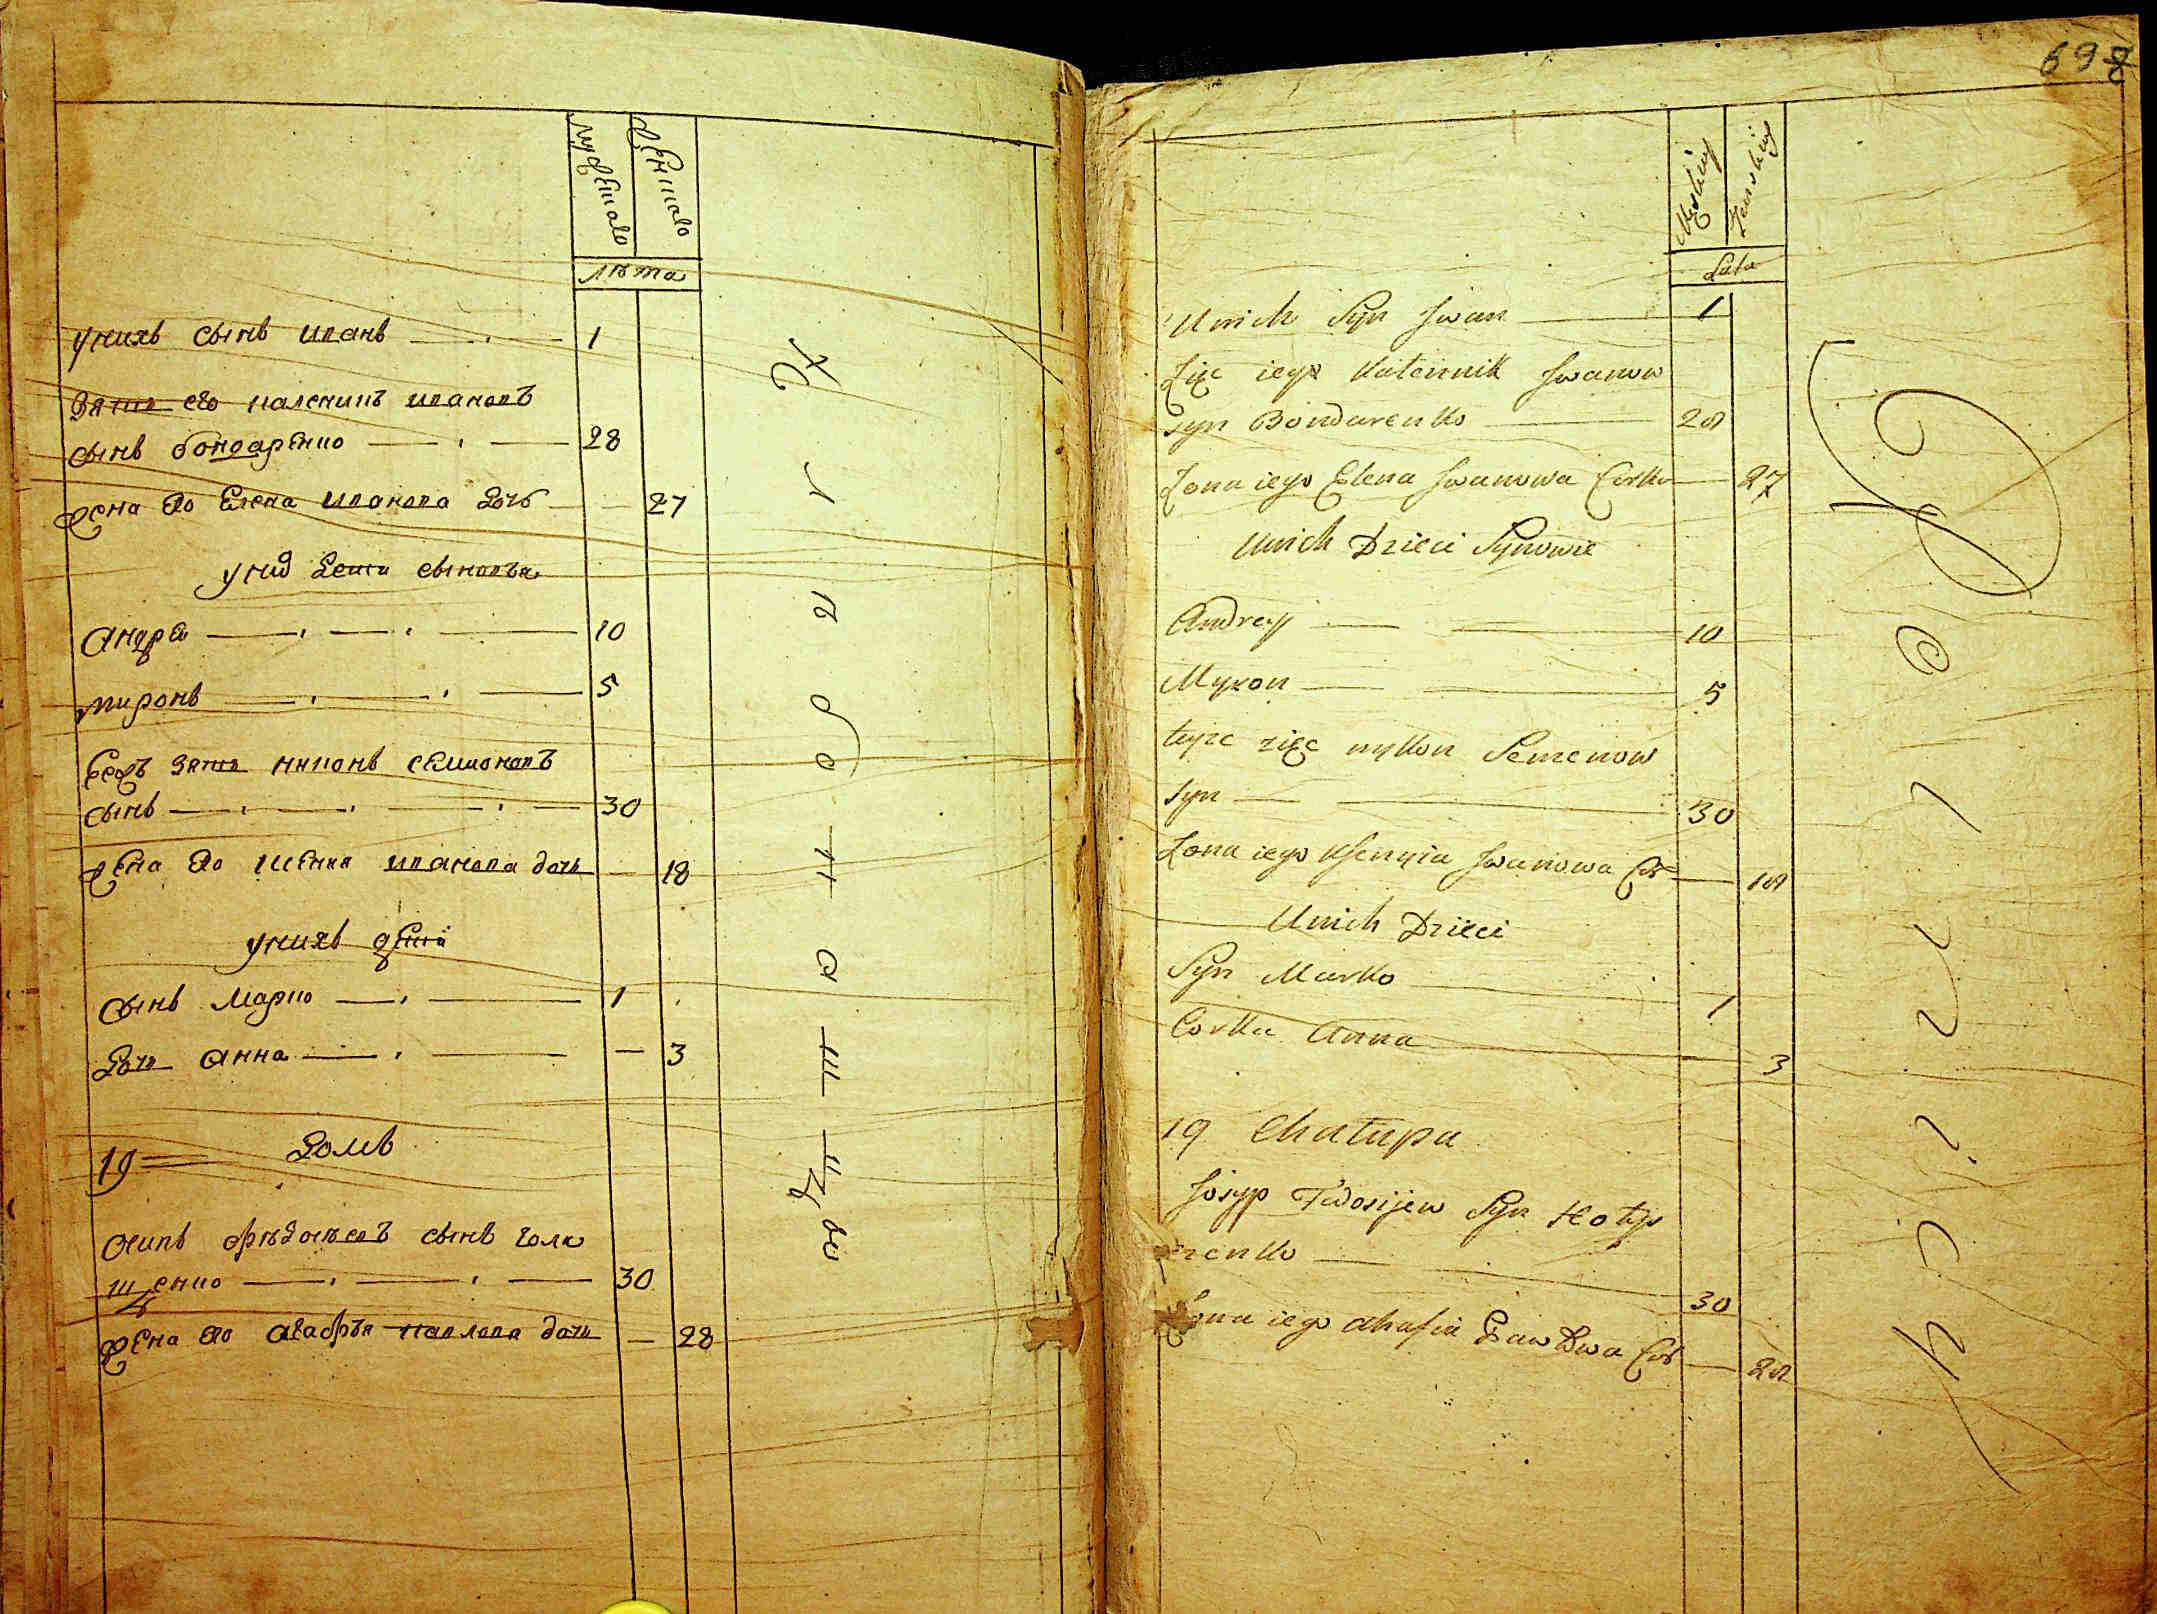 мужеска
женска
лѣта
у нихъ сынъ иванъ 1
зять его каленикъ ивановъ
сынъ бондаренко 28
жена его Елена иванова дочь 27
у нид дети сыновья
андрей 10
миронъ 5
сихъ зять никонъ семионовъ
сынъ 30
жена его ксения иванова дочь 18
у нихъ дети
сынъ марко 1
дочь анна 3
19 домъ
осипъ фѣдосѣевъ сынъ голи
щенко 30
жена его агафья павлова дочь 28
698
Męskiey
Zenskiey
Lata
Unich Syn Jwan 1
Zięc iego Kalennik Jwanow
syn Bondarenko 28
Zona iego Elena Jwanowa Corka 27
Unich Dzieci Synowie
Andrey 10
Myron 5
tyze zięc nykon Semenow
syn 30
Zona iego Ksenyia Jwanowa Cor 18
Unich Dzieci
Syn Marko 1
Corka Anna 3
19 Chatupa
Josyp Fedosijew Syn Holy
szenko 30
Zona iego Ahafia Pawlowa Cor 28